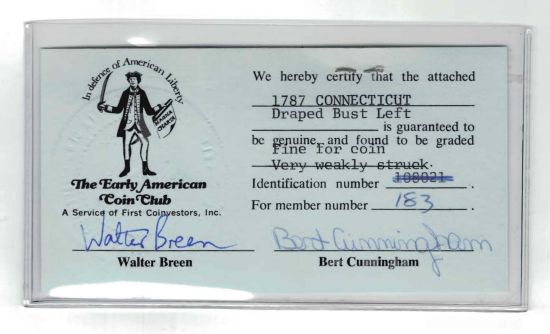 In defence of American Liberty.
MAGNA CHARTA
The Early American
Coin Club
A Service of First Coinvestors, Inc.
Walter Breen
Walter Breen
We hereby certify that the attached
1787 CONNECTICUT
Draped Bust Left
is guaranteed to
be genuine, and found to be graded
Fine for coin
Very weakly struck.
Identification number 108021.
For member number 183.
Bert Cunningham
Bert Cunningham